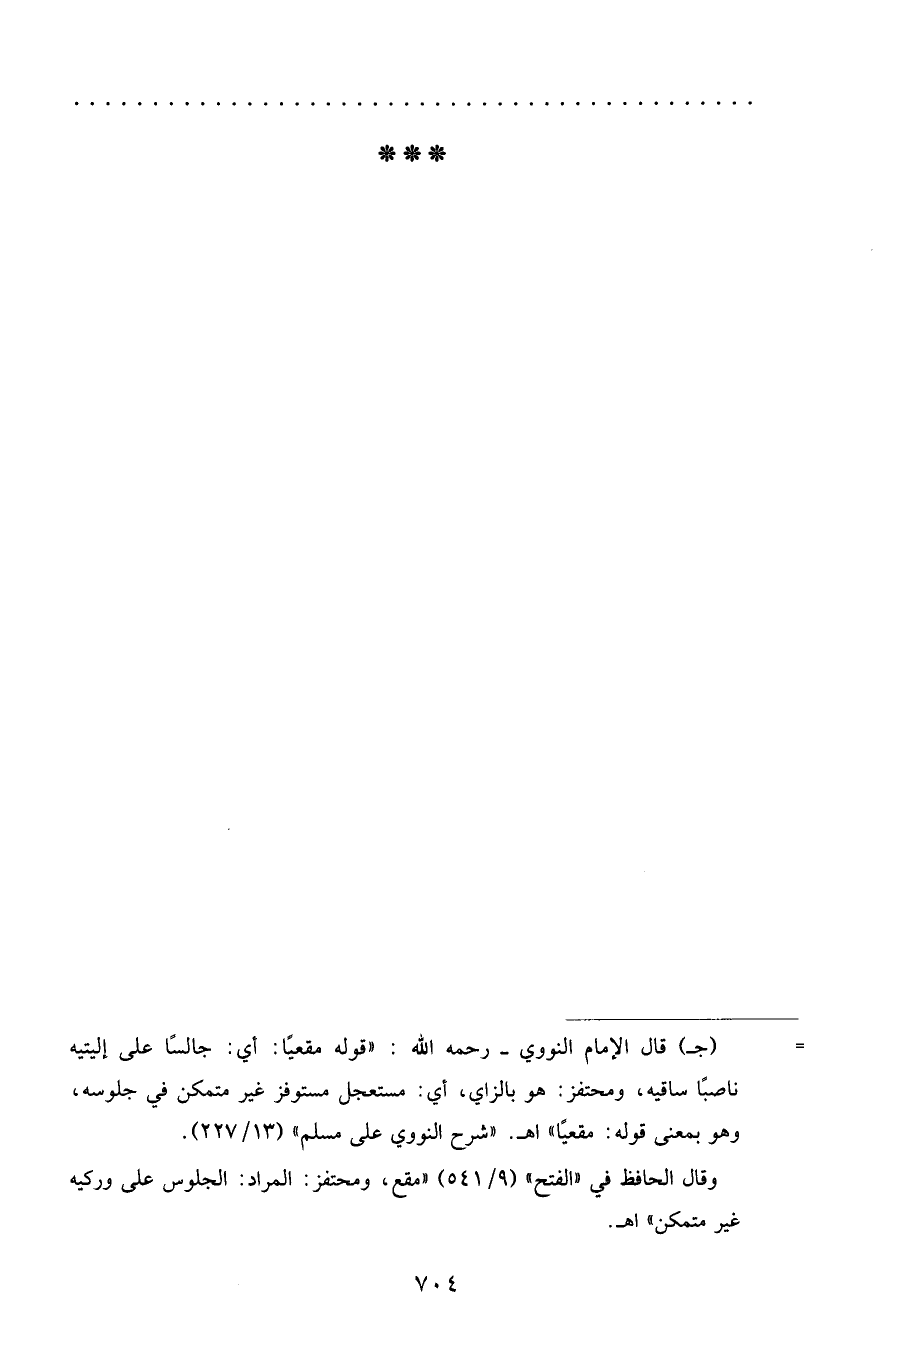 . . . . . . . . . . . . . . . . . . . . . . . . . . . . . . . . . . . . . . . . . . . .
* * *
= (جـ) قال الإمام النووي ـ رحمه الله : «قوله مقعيًا: أي: جالسًا على إليتيه
ناصبًا ساقيه، ومحتفز: هو بالزاي، أي: مستعجل مستوفز غير متمكن في جلوسه،
وهو بمعنى قوله: مقعيًا» اهـ. «شرح النووي على مسلم» (١٣/ ٢٢٧).
وقال الحافظ في «الفتح» (٩/ ٥٤١) «مقع، ومحتفز: المراد: الجلوس على وركيه
غير متمكن» اهـ.
٧٠٤